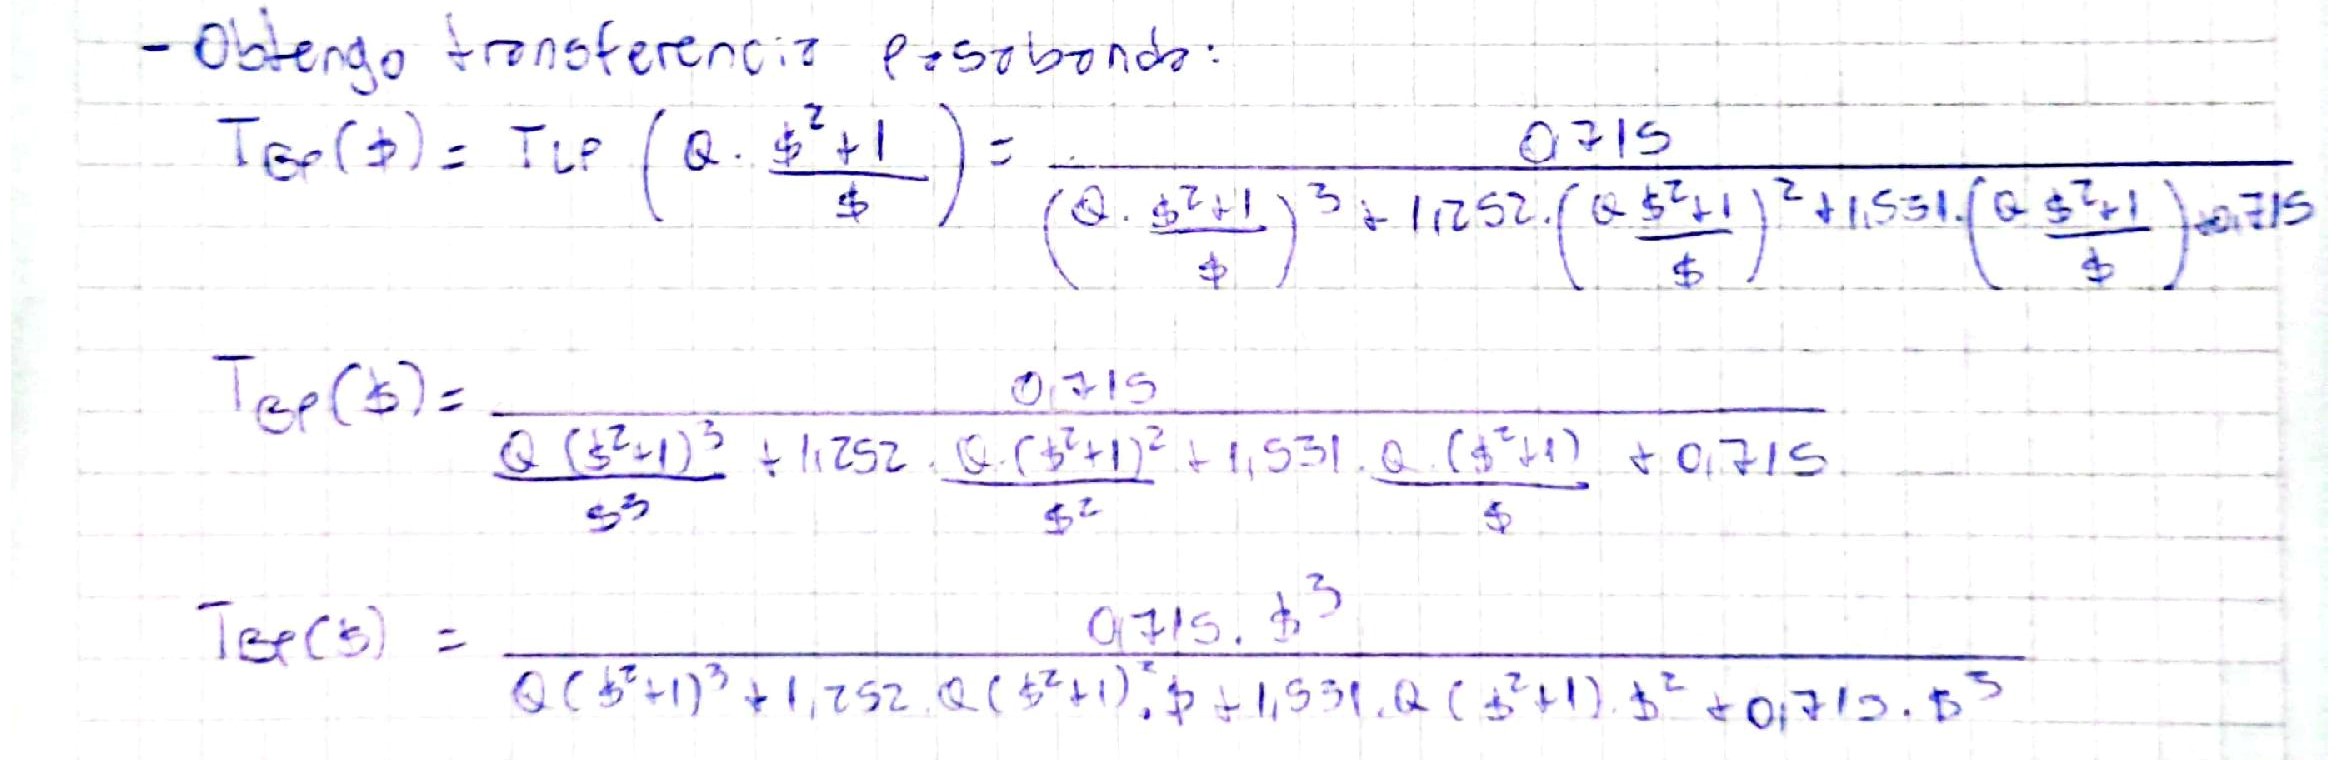 - Obtengo transferencia pasabanda:
T_BP($) = T_LP (Q · ($²+1)/$) = 0,715 / ((Q · ($²+1)/$)³ + 1,252 · (Q ($²+1)/$)² + 1,531 · (Q ($²+1)/$) + 0,715)
T_BP($) = 0,715 / (Q ($²+1)³/$³ + 1,252 · Q · ($²+1)²/$² + 1,531 · Q · ($²+1)/$ + 0,715)
T_BP($) = 0,715 · $³ / (Q ($²+1)³ + 1,252 · Q ($²+1)² · $ + 1,531 · Q ($²+1) · $² + 0,715 · $³)